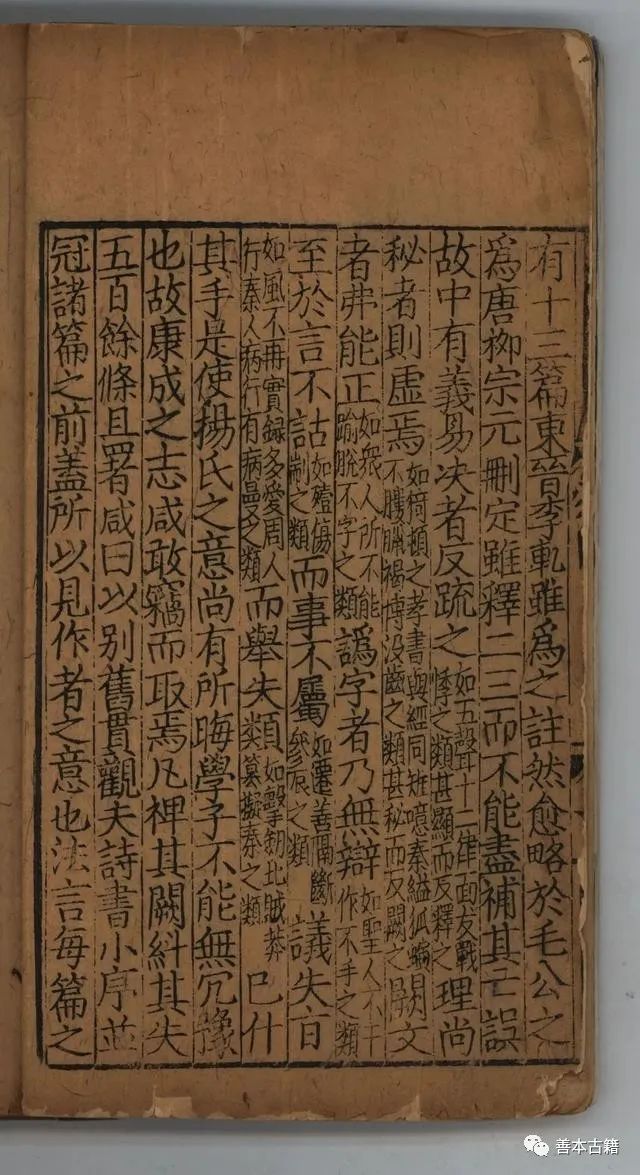 有十三篇東晉李軌雖爲之註然愈略於毛公之
爲唐栁宗元刪定雖釋二三而不能盡補其亡誤
故中有義易决者反疏之如五聲十二律面友戰悸之類甚顯而反釋之理尚
秘者則虚焉如倚頓之孝書與經同矩噫秦縊狐蝙不臘褐博没齒之類甚秘而反闕之闕文
者弗能正如衆人所不能踰脫不字之類譌字者乃無辯如聖人不干作不手之類
至於言不詁如殪傷制之類而事不屬如遷善隔斷參辰之類議失旨
如風不再實録多愛周人行秦人病行有病曼之類而舉失類如擊北賊莽類篡擬秦之類巳什
其手是使揚氏之意尚有所晦學子不能無冘豫
也故康成之志咸敢竊而取焉凡裨其闕糾其失
五百餘條且署咸曰以别舊貫觀夫詩書小序並
冠諸篇之前蓋所以見作者之意也法言每篇之
善本古籍